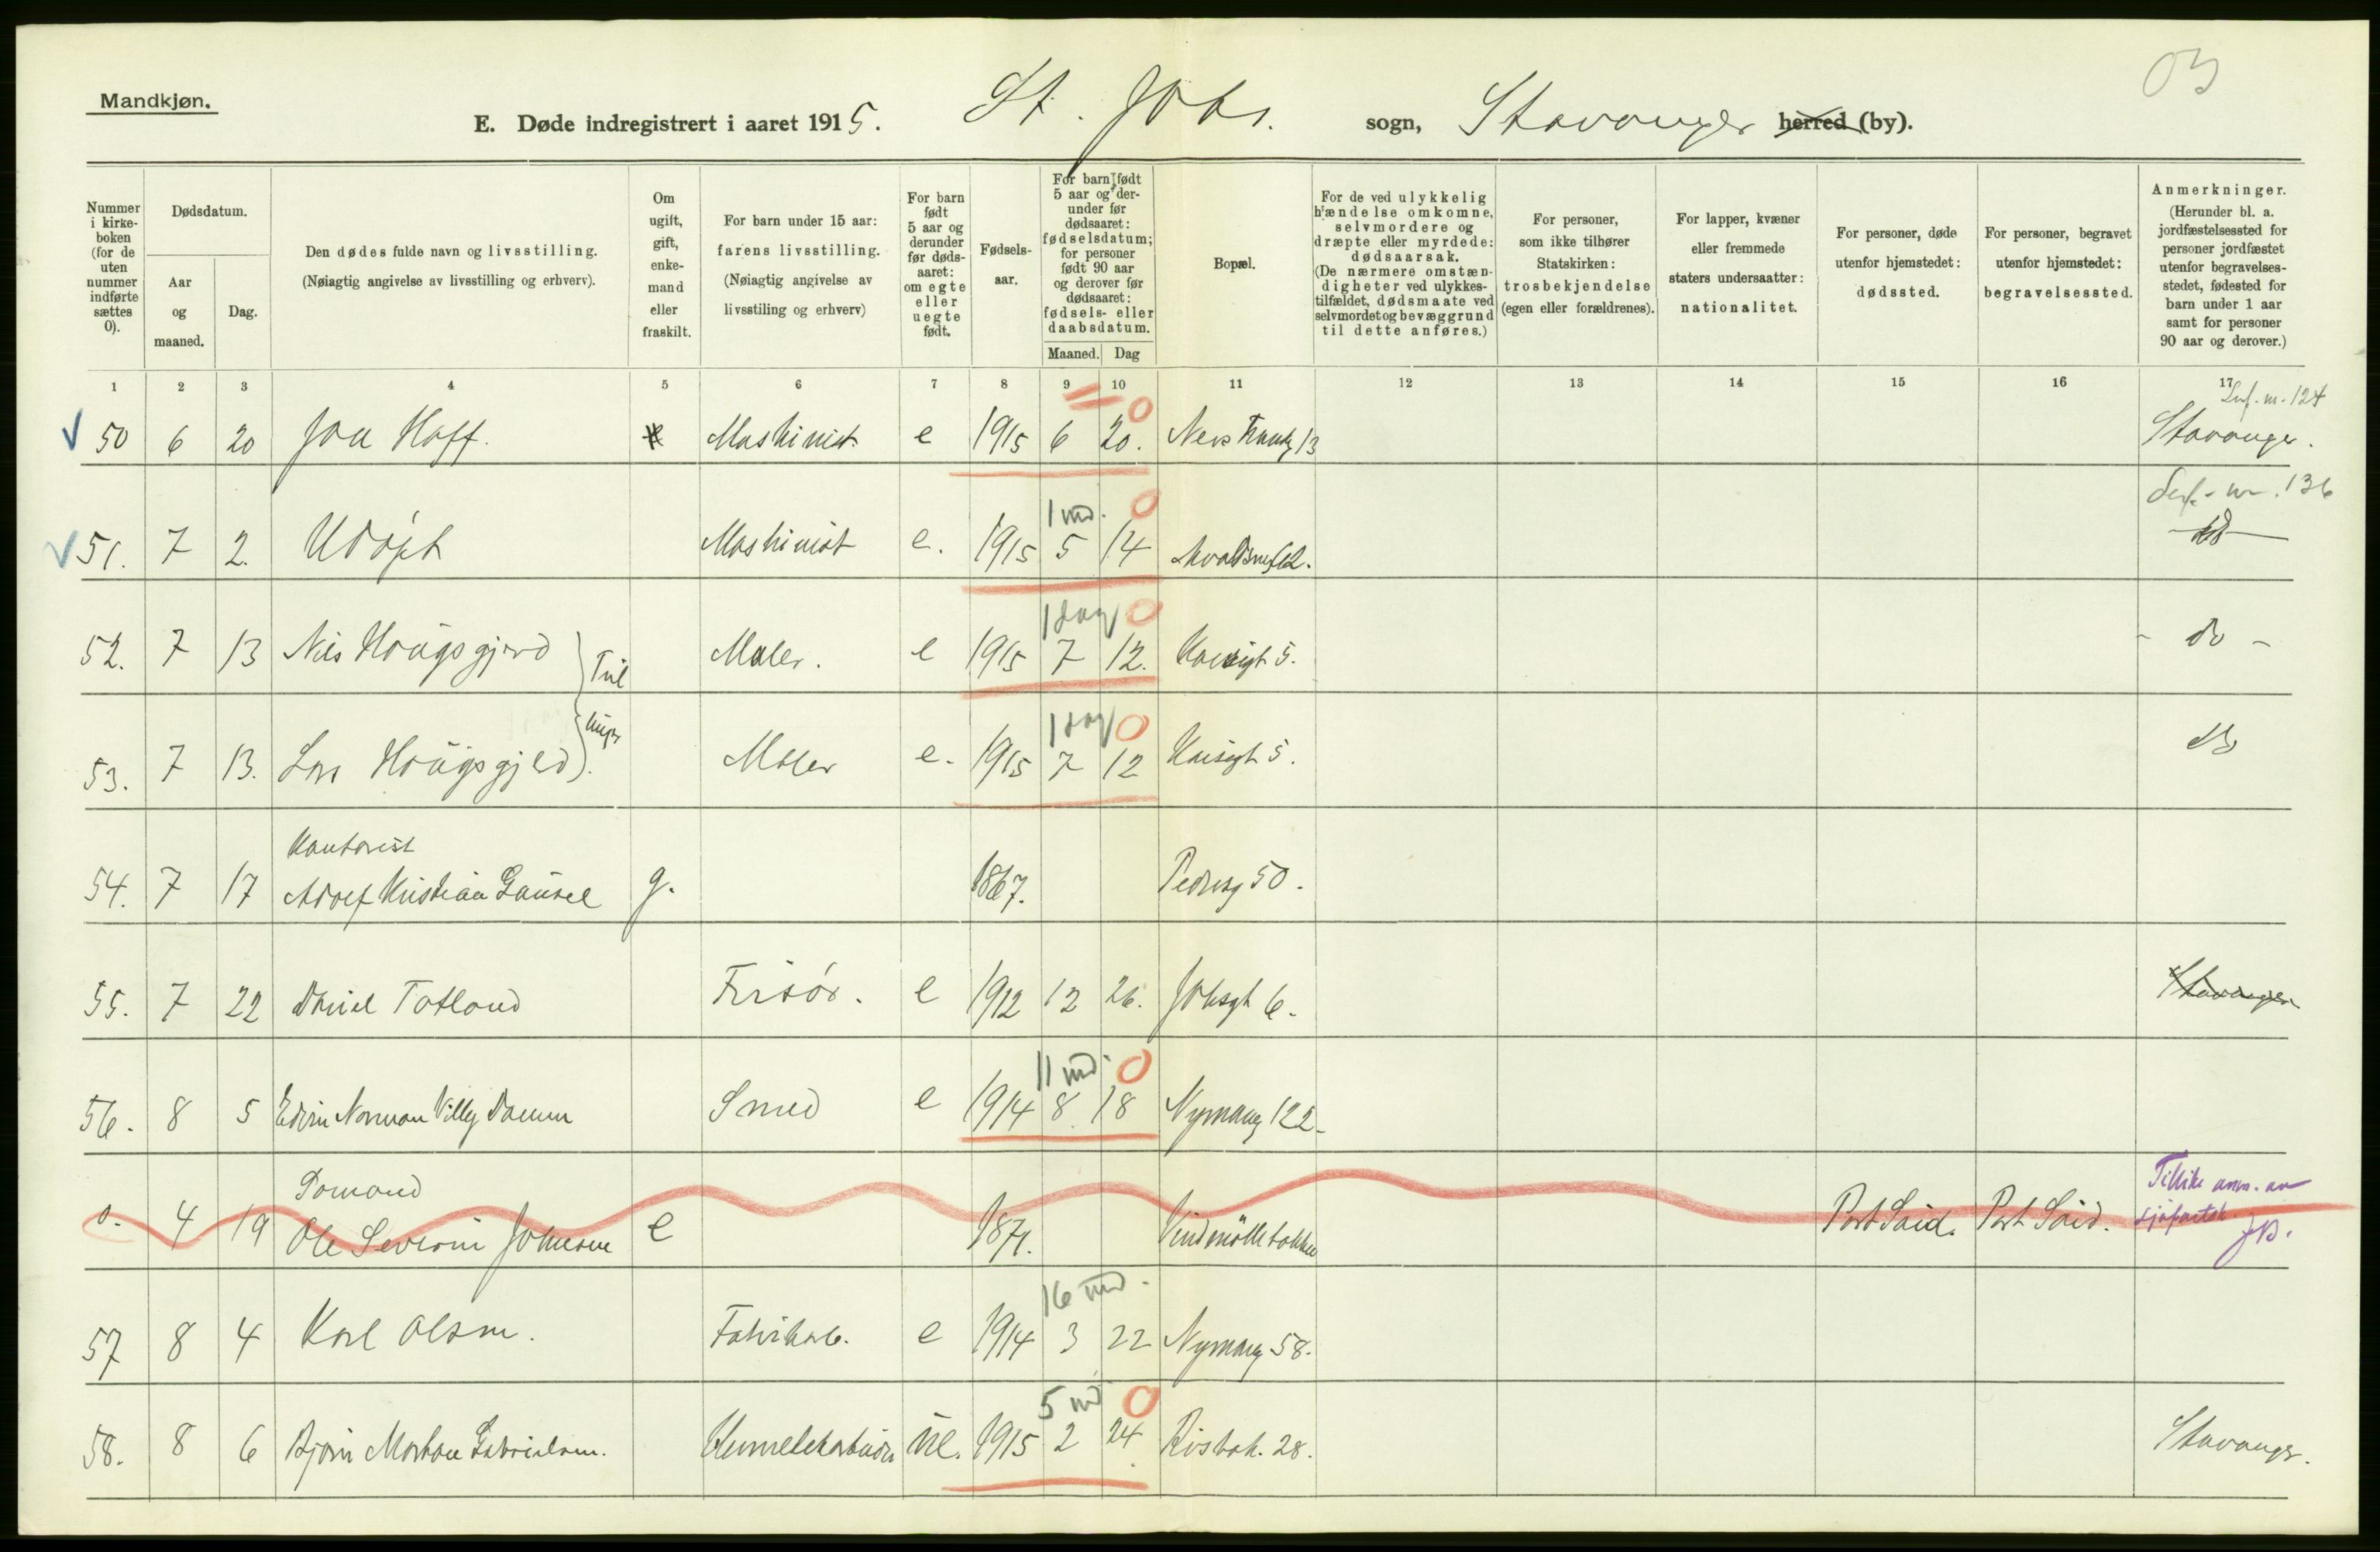 03
Mandkjøn.
E. Døde indregistrert i aaret 1915. St. Johs. sogn, Stavanger herred (by).
Nummer i kirke- boken (for de uten nummer indførte sættes 0).
Dødsdatum.
Aar og maaned.
Dag.
Den dødes fulde navn og livsstilling.
(Nøiagtig angivelse av livsstilling og erhverv).
Om ugift, gift, enke- mand eller fraskilt.
For barn under 15 aar: farens livsstilling.
(Nøiagtig angivelse av livsstiling og erhverv)
For barn født 5 aar og derunder før døds- aaret: om egte eller uegte født.
Fødsels- aar.
For barn født 5 aar og der- under før dødsaaret: fødselsdatum; for personer født 90 aar og derover før dødsaaret: fødsels- eller daabsdatum.
Maaned. Dag
Bopæl.
For de ved ulykkelig hændelse omkomne, selvmordere og dræpte eller myrdede: dødsaarsak. (De nærmere omstæn- digheter ved ulykkes- tilfældet, dødsmaate ved selvmordet og bevæggrund til dette anføres.)
For personer, som ikke tilhører Statskirken: trosbekjendelse (egen eller forældrenes).
For lapper, kvæner eller fremmede staters undersaatter: nationalitet.
For personer, døde utenfor hjemstedet: dødssted.
For personer, begravet utenfor hjemstedet: begravelsessted.
Anmerkninger.
(Herunder bl. a. jordfæstelsessted for personer jordfæstet utenfor begravelses- stedet, fødested for barn under 1 aar samt for personer 90 aar og derover.)
1 2 3 4 5 6 7 8 9 10 11 12 13 14 15 16 17
124
50 6 20 Hoff. Maskinist e 1915 6 20. 13 Stavanger.
136
1 md. 0
51. 7 2. Udøpt Maskinist e. 1915 5 14 do
1 dag 0
52. 7 13 Nils Haugsgjerd Maler. e 1915 7 12. 5. - do -
Tvil
linger
1 dag 0
53. 7 13. Lars Haugsgjerd Maler e. 1915 7 12 5. do
Kontorist
54. 7 17 Adolf Kristian Gausel g. 1867. Pedersg 50.
55. 7 22 Daniel Totland Frisør. e 1912 12 26. Johsgt 6. Stavanger
11 md. 0
56. 8 5 Edvin Norman Villy Damm Smed e 1914 8 18 Nymansg 122.
Sømand
0. 4 19 Ole Severin Johnsen e 1871. Vindmøllebakken Port Said. Port Said. Tillike anm. av
sjøfartsk.
16 md.
57 8 4 Karl Olsen. Fabrikarb. e 1914 3 22 Nymansg 58.
5 md 0
58. 8 6 Bjørn Morton Gabrielsen. Hermetikarbeider ue. 1915 2 24. Risbak. 28. Stavanger.